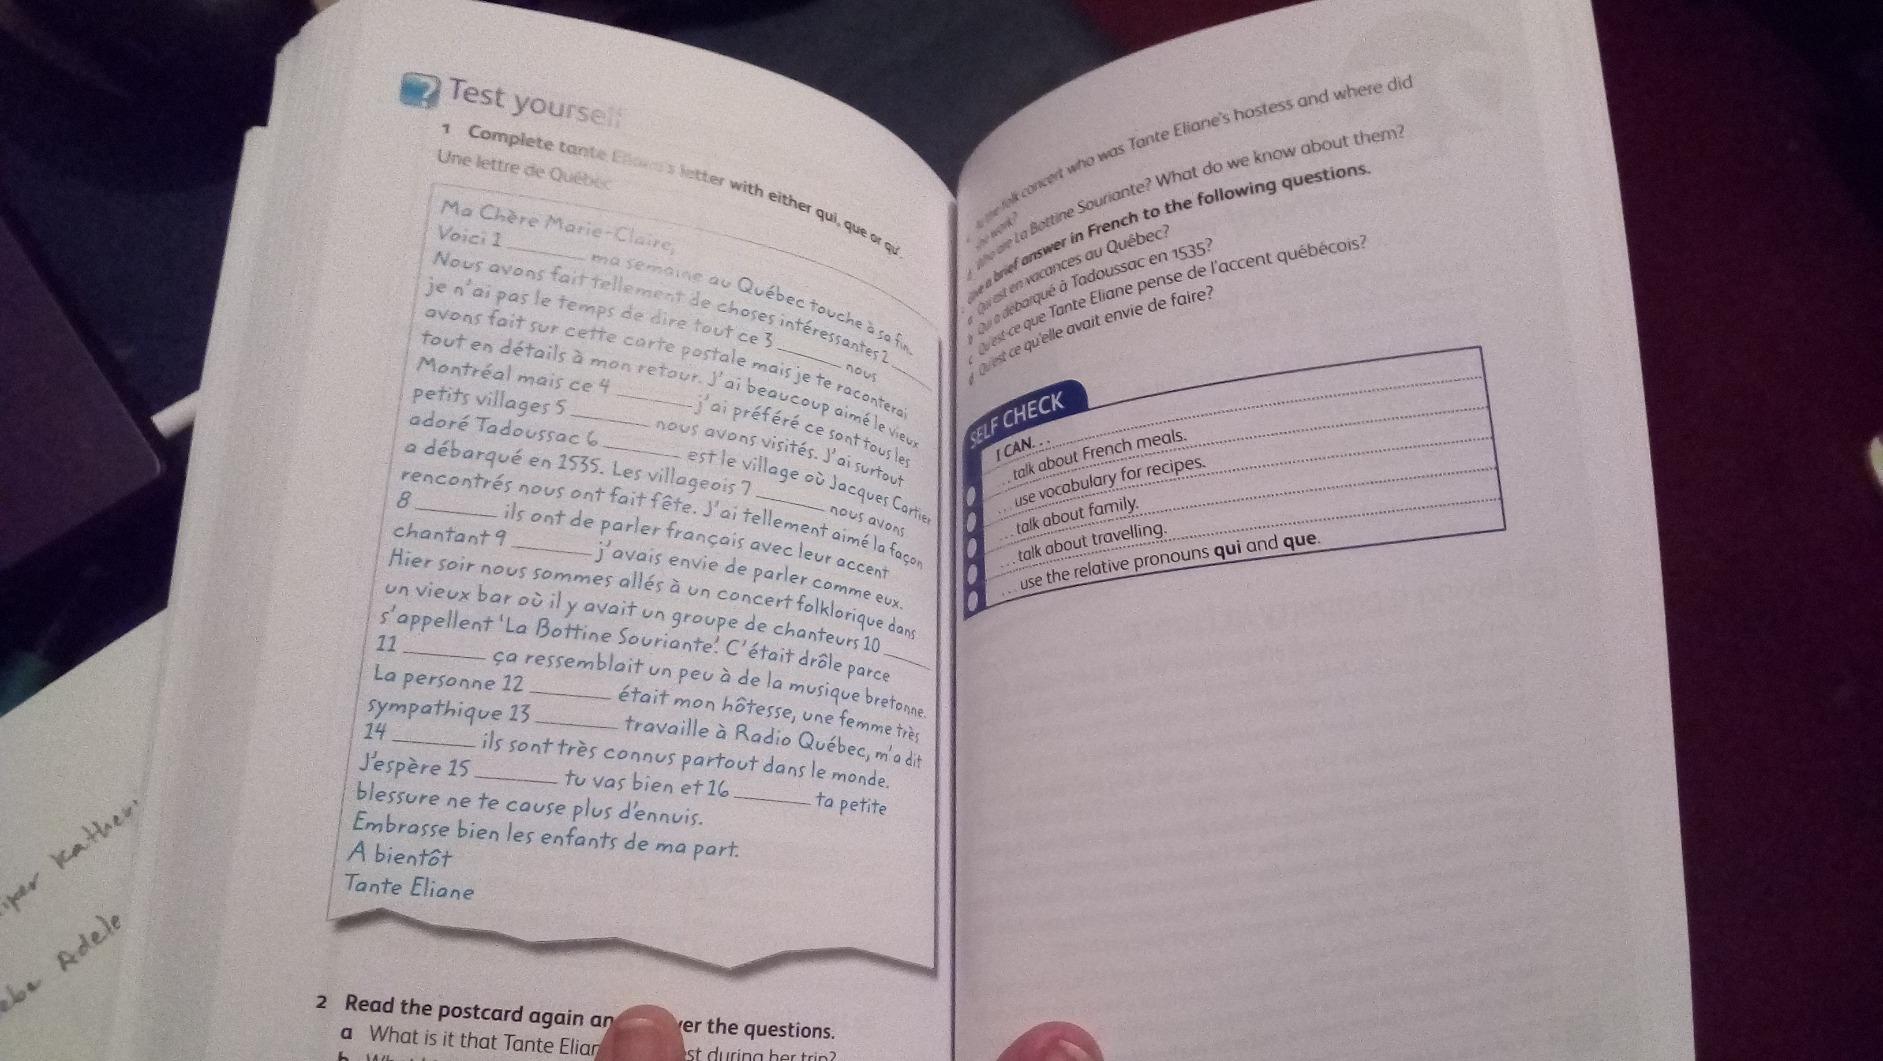 Test yourself
1 Complete tante Eliane's letter with either qui, que or qu'.
Une lettre de Québec
Ma Chère Marie-Claire,
Voici 1 ______ ma semaine au Québec touche à sa fin.
Nous avons fait tellement de choses intéressantes 2 ______
je n'ai pas le temps de dire tout ce 3 ______ nous
avons fait sur cette carte postale mais je te raconterai
tout en détails à mon retour. J'ai beaucoup aimé le vieux
Montréal mais ce 4 ______ j'ai préféré ce sont tous les
petits villages 5 ______ nous avons visités. J'ai surtout
adoré Tadoussac 6 ______ est le village où Jacques Cartier
a débarqué en 1535. Les villageois 7 ______ nous avons
rencontrés nous ont fait fête. J'ai tellement aimé la façon
8 ______ ils ont de parler français avec leur accent
chantant 9 ______ j'avais envie de parler comme eux.
Hier soir nous sommes allés à un concert folklorique dans
un vieux bar où il y avait un groupe de chanteurs 10 ______
s'appellent 'La Bottine Souriante'. C'était drôle parce
11 ______ ça ressemblait un peu à de la musique bretonne.
La personne 12 ______ était mon hôtesse, une femme très
sympathique 13 ______ travaille à Radio Québec, m'a dit
14 ______ ils sont très connus partout dans le monde.
J'espère 15 ______ tu vas bien et 16 ______ ta petite
blessure ne te cause plus d'ennuis.
Embrasse bien les enfants de ma part.
A bientôt
Tante Eliane
2 Read the postcard again an
er the questions.
a What is it that Tante Elian
st during her trip?
the folk concert who was Tante Eliane's hostess and where did
she work?
Who are La Bottine Souriante? What do we know about them?
Give a brief answer in French to the following questions.
a Qui est en vacances au Québec?
b Qui a débarqué à Tadoussac en 1535?
c Qu'est-ce que Tante Eliane pense de l'accent québécois?
d Qu'est ce qu'elle avait envie de faire?
SELF CHECK
I CAN. . .
. . . talk about French meals.
. . . use vocabulary for recipes.
. . . talk about family.
. . . talk about travelling.
. . . use the relative pronouns qui and que.
Adele